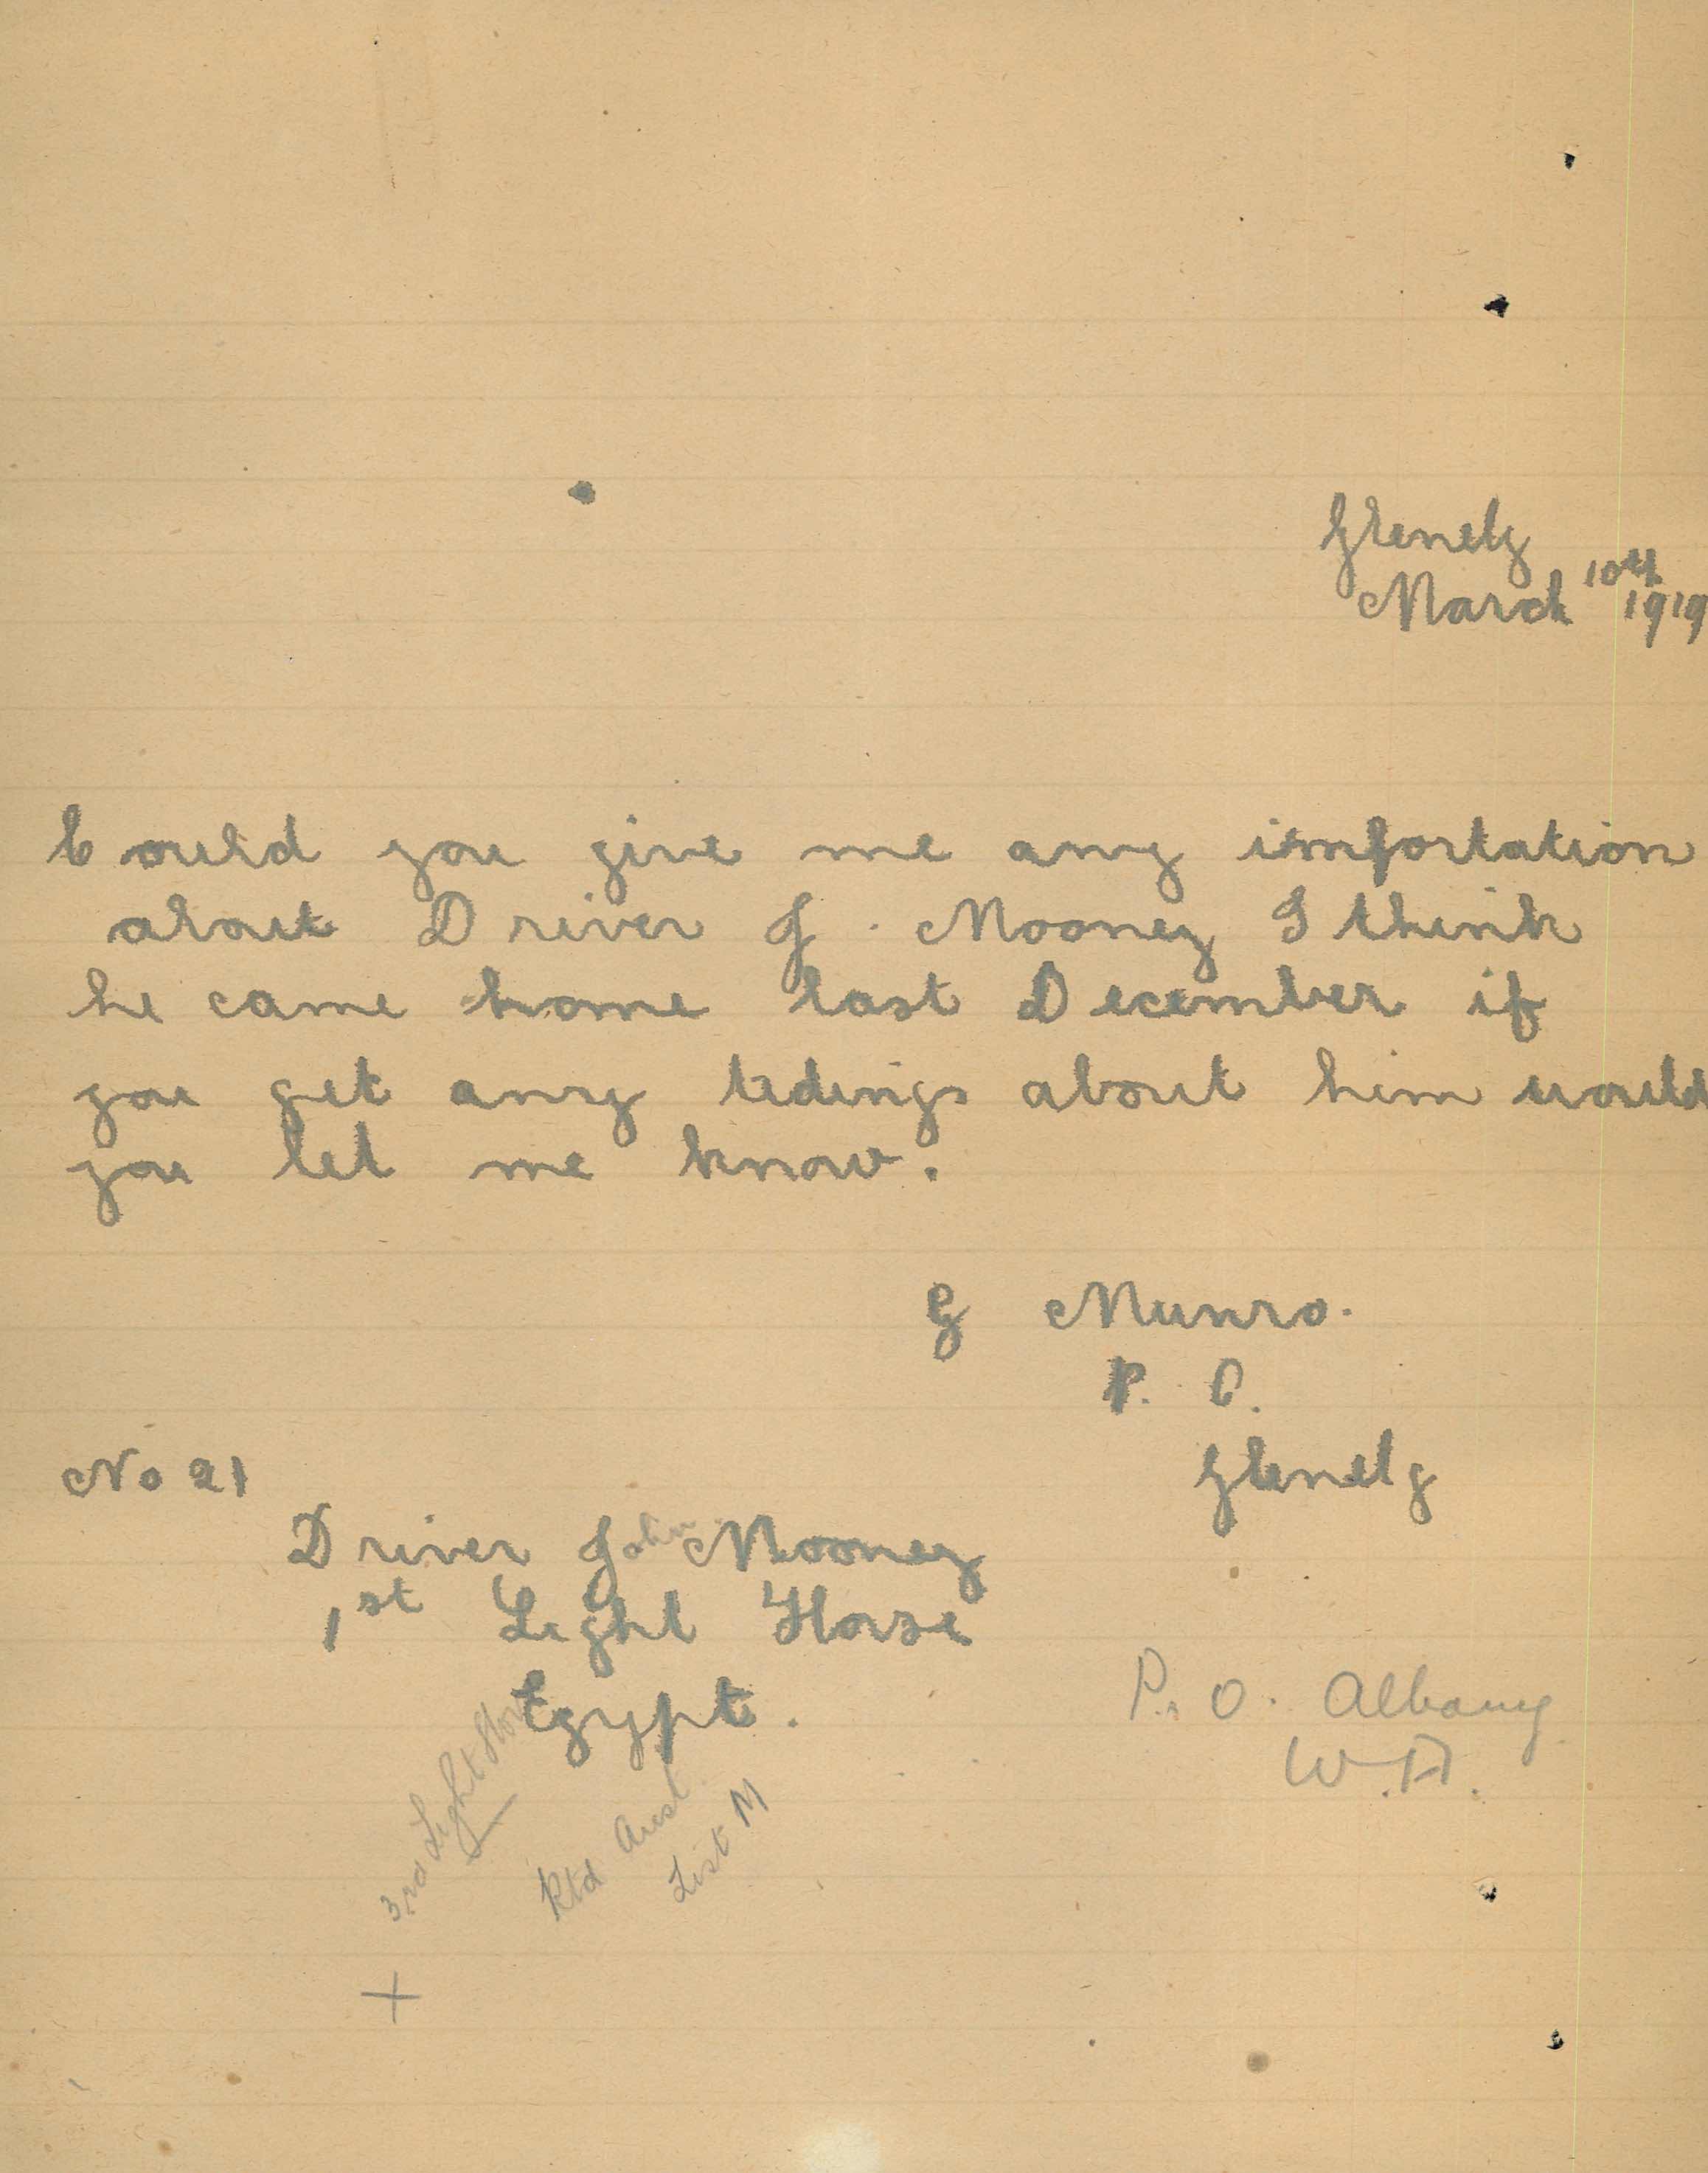 Glenelg
March 10th 1919
Could you give me any imfortation
about Driver J. Mooney I think
he came home last December if
you get any tidings about him would
you let me know.
G Munro.
P. O.
Glenelg
No 21
Driver John Mooney
1st Light Horse
Egypt.
P. O. Albany
W.A.
3rd Light Horse
Rtd Aust
List M